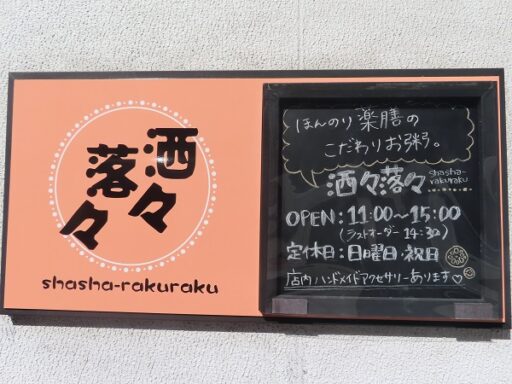 洒々
落々
shasha-rakuraku
ほんのり薬膳の
こだわりお粥。
洒々落々
shasha-
rakuraku
OPEN:11:00〜15:00
(ラストオーダー 14:30)
定休日:日曜日・祝日
店内ハンドメイドアクセサリーあります♡